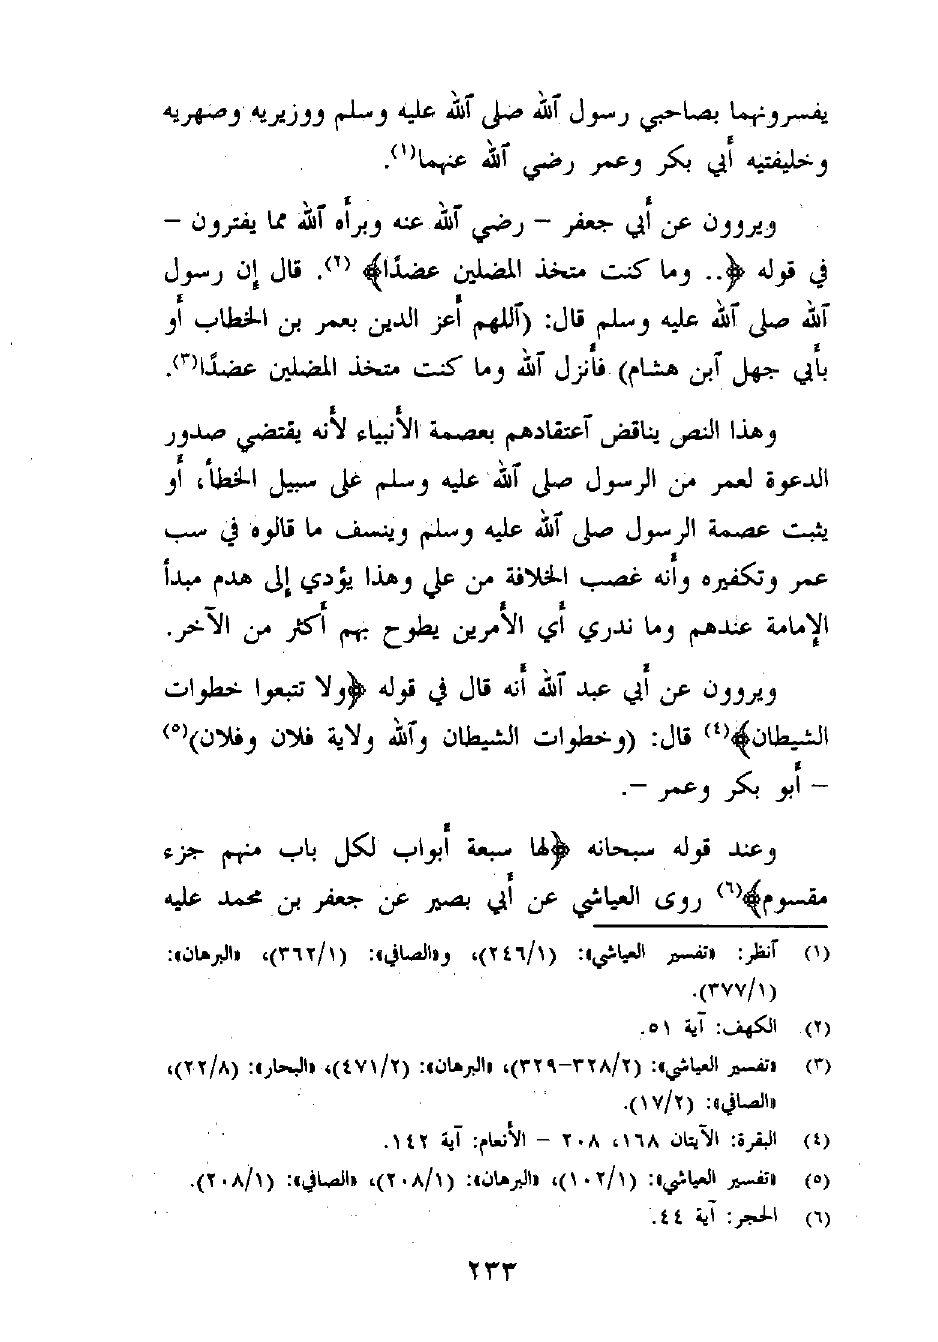 يفسرونهما بصاحبي رسول ٱلله صلى ٱلله عليه وسلم ووزيريه وصهريه
وخليفتيه أبي بكر وعمر رضي ٱلله عنهما(١).
ويروون عن أبي جعفر – رضي ٱلله عنه وبرأه ٱلله مما يفترون –
في قوله ﴿.. وما كنت متخذ المضلين عضدًا﴾ (٢). قال إن رسول
ٱلله صلى ٱلله عليه وسلم قال: (ٱللهم أعز الدين بعمر بن الخطاب أو
بأبي جهل ٱبن هشام) فأنزل ٱلله وما كنت متخذ المضلين عضدًا(٣).
وهذا النص يناقض ٱعتقادهم بعصمة الأنبياء لأنه يقتضي صدور
الدعوة لعمر من الرسول صلى ٱلله عليه وسلم على سبيل الخطأ، أو
يثبت عصمة الرسول صلى ٱلله عليه وسلم وينسف ما قالوه في سب
عمر وتكفيره وأنه غصب الخلافة من علي وهذا يؤدي إلى هدم مبدأ
الإمامة عندهم وما ندري أي الأمرين يطوح بهم أكثر من الآخر.
ويروون عن أبي عبد ٱلله أنه قال في قوله ﴿ولا تتبعوا خطوات
الشيطان﴾(٤) قال: (وخطوات الشيطان وٱلله ولاية فلان وفلان)(٥)
– أبو بكر وعمر –.
وعند قوله سبحانه ﴿لها سبعة أبواب لكل باب منهم جزء
مقسوم﴾(٦) روى العياشي عن أبي بصير عن جعفر بن محمد عليه
(١) ٱنظر: «تفسير العياشي»: (٢٤٦/١)، و«الصافي»: (٣٦٢/١)، «البرهان»:
(٣٧٧/١).
(٢) الكهف: آية ٥١.
(٣) «تفسير العياشي»: (٣٢٨/٢–٣٢٩)، «البرهان»: (٤٧١/٢)، «البحار»: (٢٢/٨)،
«الصافي»: (١٧/٢).
(٤) البقرة: الآيتان ١٦٨، ٢٠٨ – الأنعام: آية ١٤٢.
(٥) «تفسير العياشي»: (١٠٢/١)، «البرهان»: (٢٠٨/١)، «الصافي»: (٢٠٨/١).
(٦) الحجر: آية ٤٤.
٢٣٣